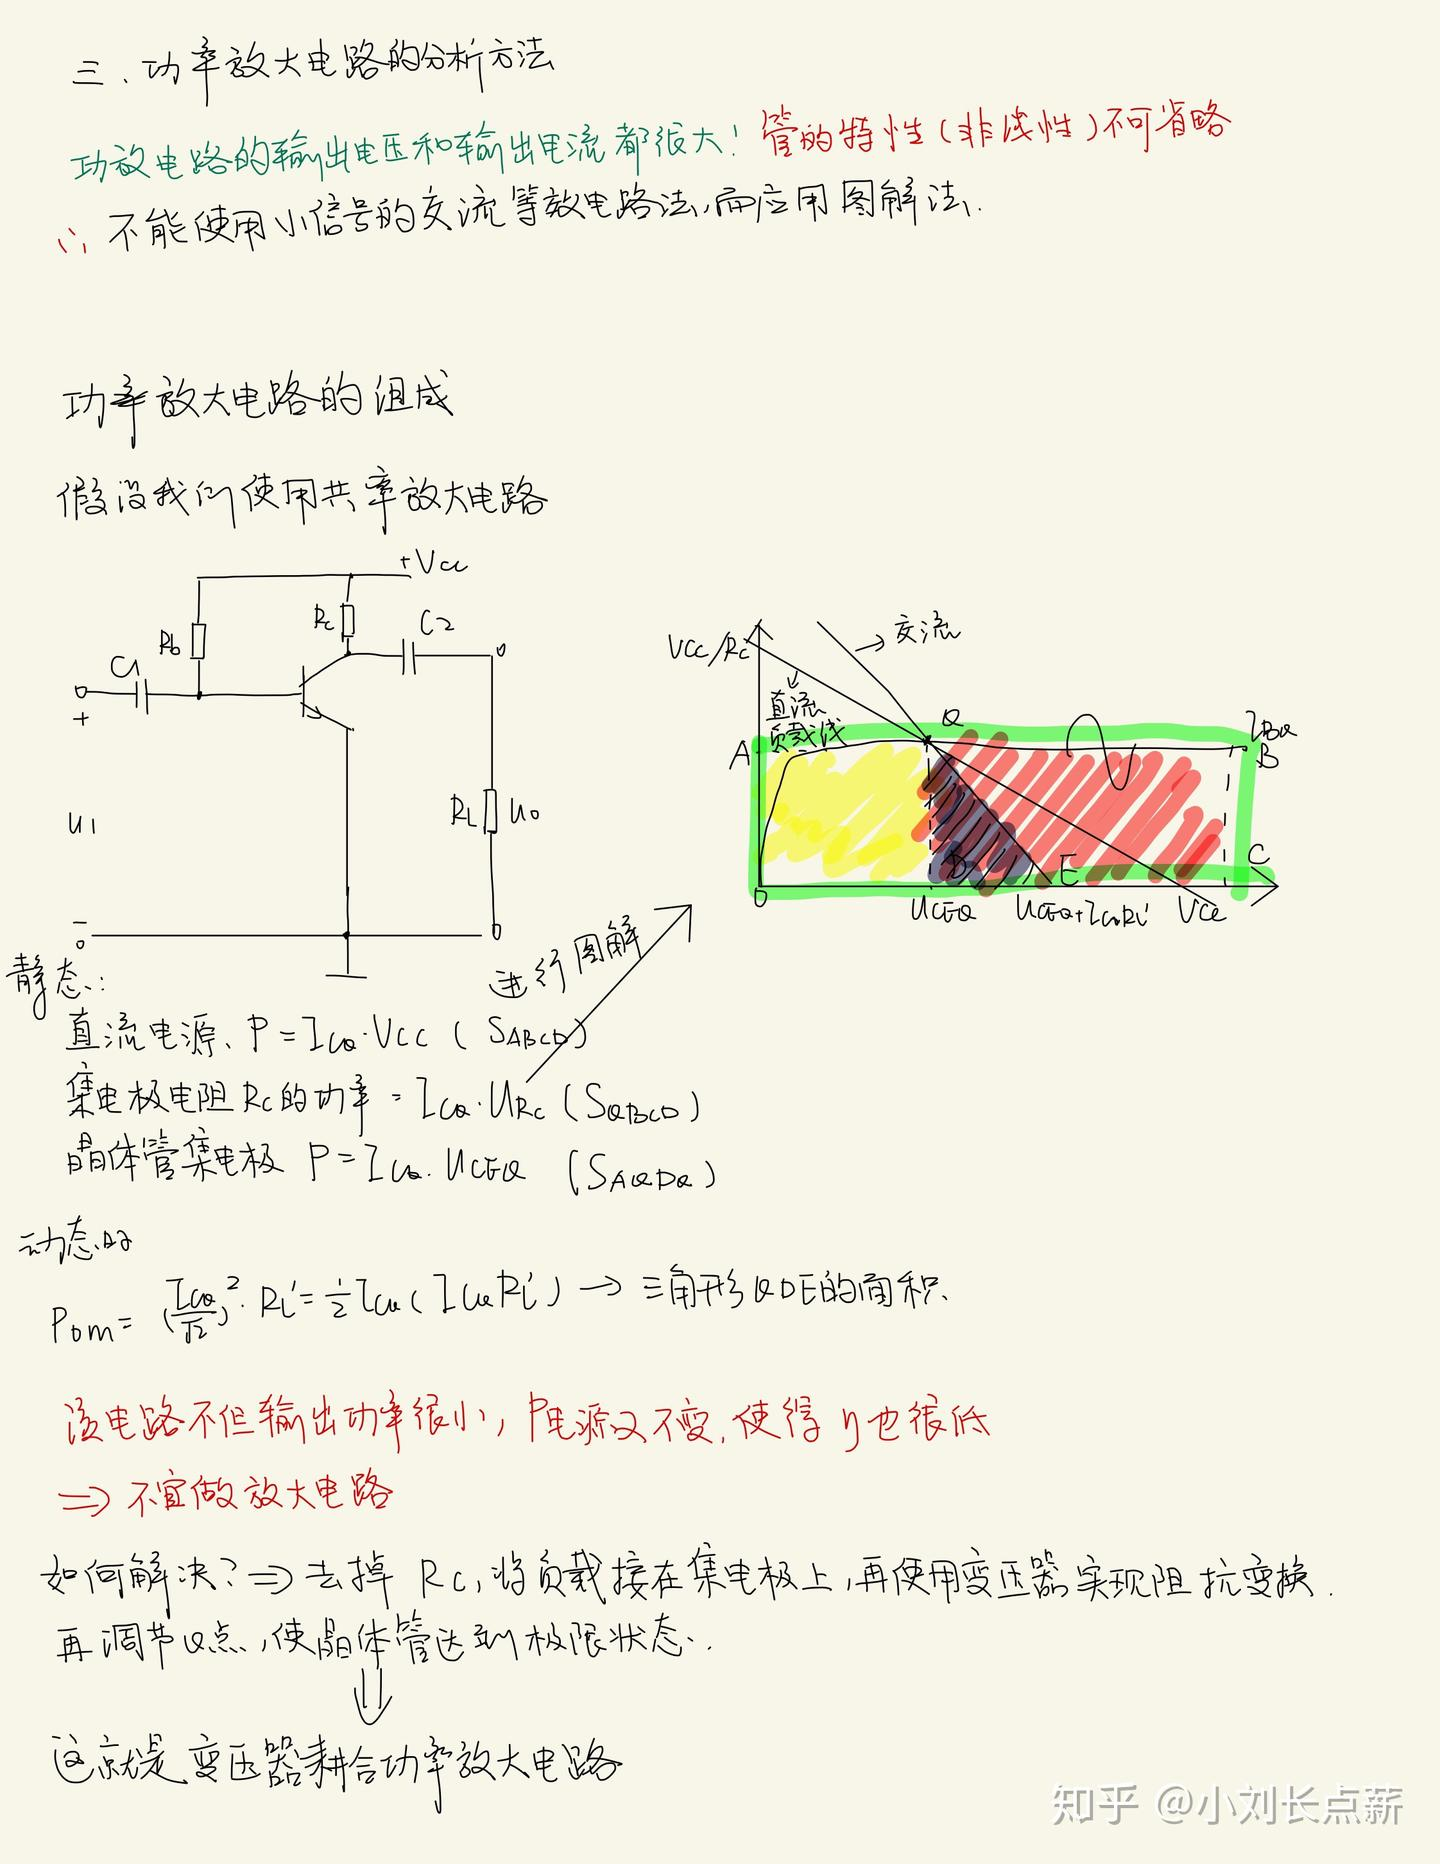 三、功率放大电路的分析方法
功放电路的输出电压和输出电流都很大！管的特性(非线性)不可省略
∴ 不能使用小信号的交流等效电路法，而应用图解法.
功率放大电路的组成
假设我们使用共率放大电路
+Vcc
Rb
Rc
C2
C1
+
U1
RL
Uo
VCC/Rc
→交流
直流
负载线
Q
IBQ
A
B
D
E
C
O
UCEQ
UCEQ+ICQRL'
VCC
进行图解
静态:
直流电源、P=ICQ·VCC (SABCD)
集电极电阻Rc的功率=ICQ·URC (SQBCD)
晶体管集电极 P=ICQ·UCEQ (SAQDO)
动态时
Pom=(ICQ/√2)²·RL'=1/2ICQ(ICQRL')→三角形QDE的面积、
该电路不但输出功率很小，P电源又不变，使得η也很低
⇒不宜做放大电路
如何解决?⇒去掉Rc，将负载接在集电极上，再使用变压器实现阻抗变换.
再调节Q点，使晶体管达到极限状态.
⇓
这就是变压器耦合功率放大电路
知乎 @小刘长点薪